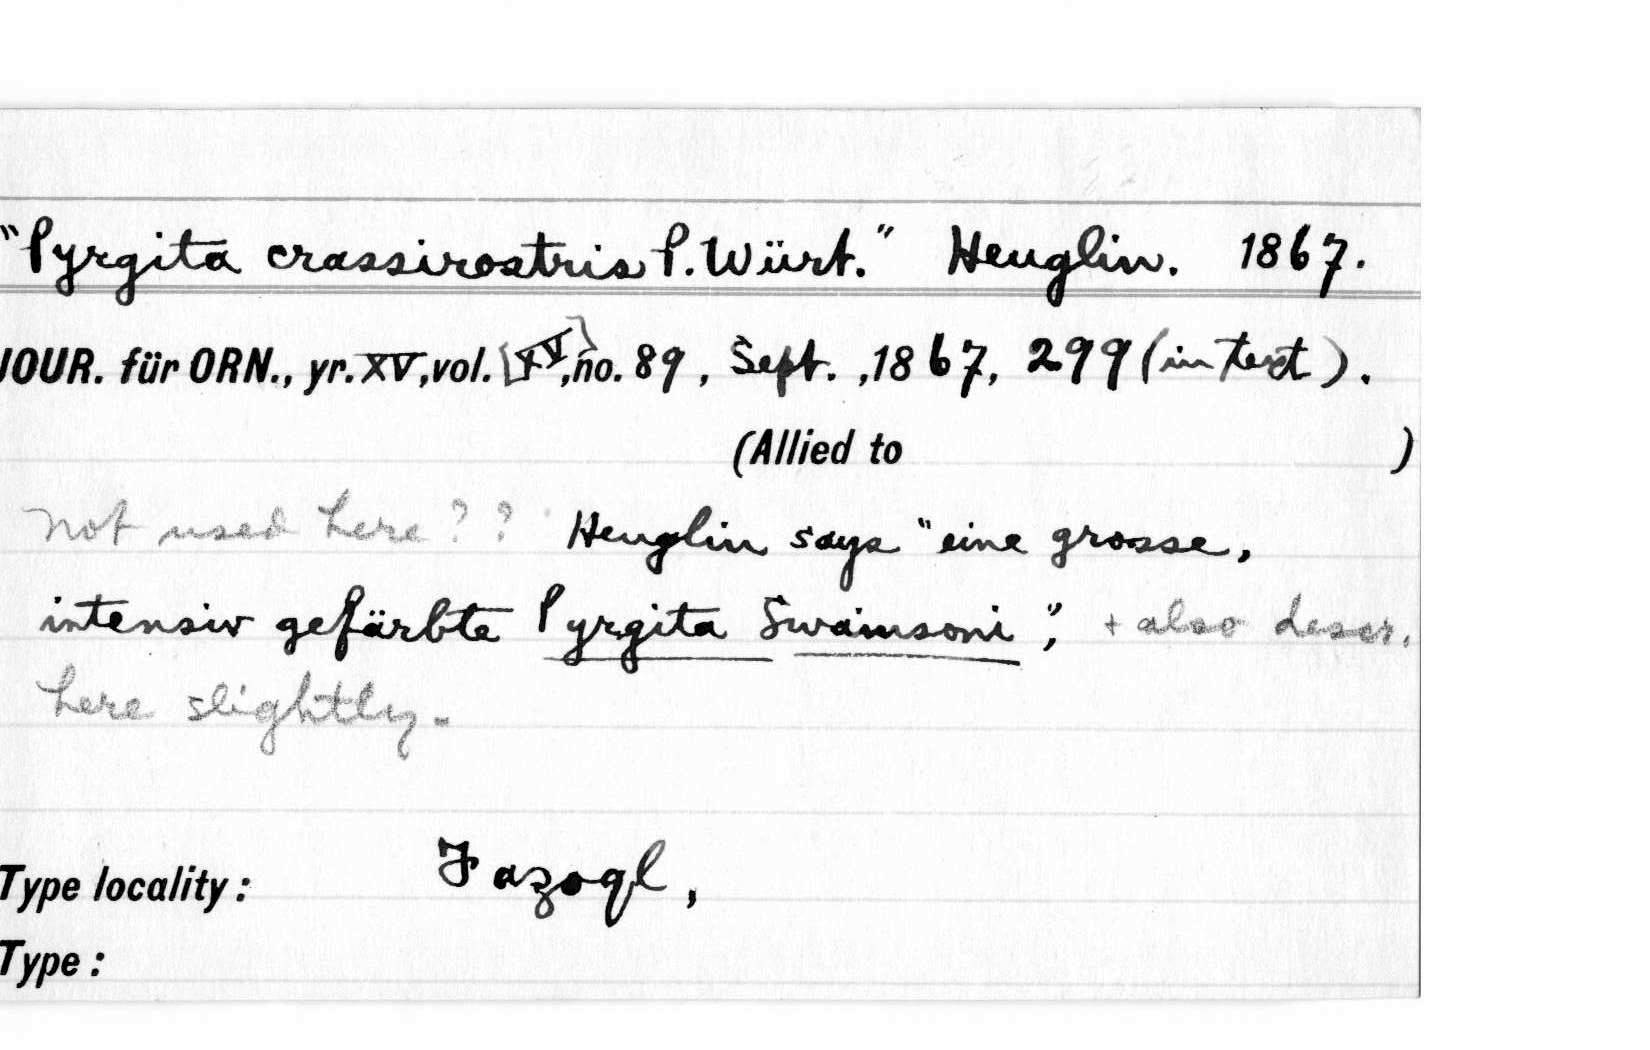 "Pyrgita crassirostris P. Würt." Heuglin. 1867.
JOUR. für ORN., yr. XV, vol. [XV], no. 89, Sept., 1867, 299 (in text).
(Allied to )
Not used here?? Heuglin says "eine grosse,
intensiv gefärbte Pyrgita Swainsoni", + also descr.
here slightly.
Type locality: Fazogl,
Type: